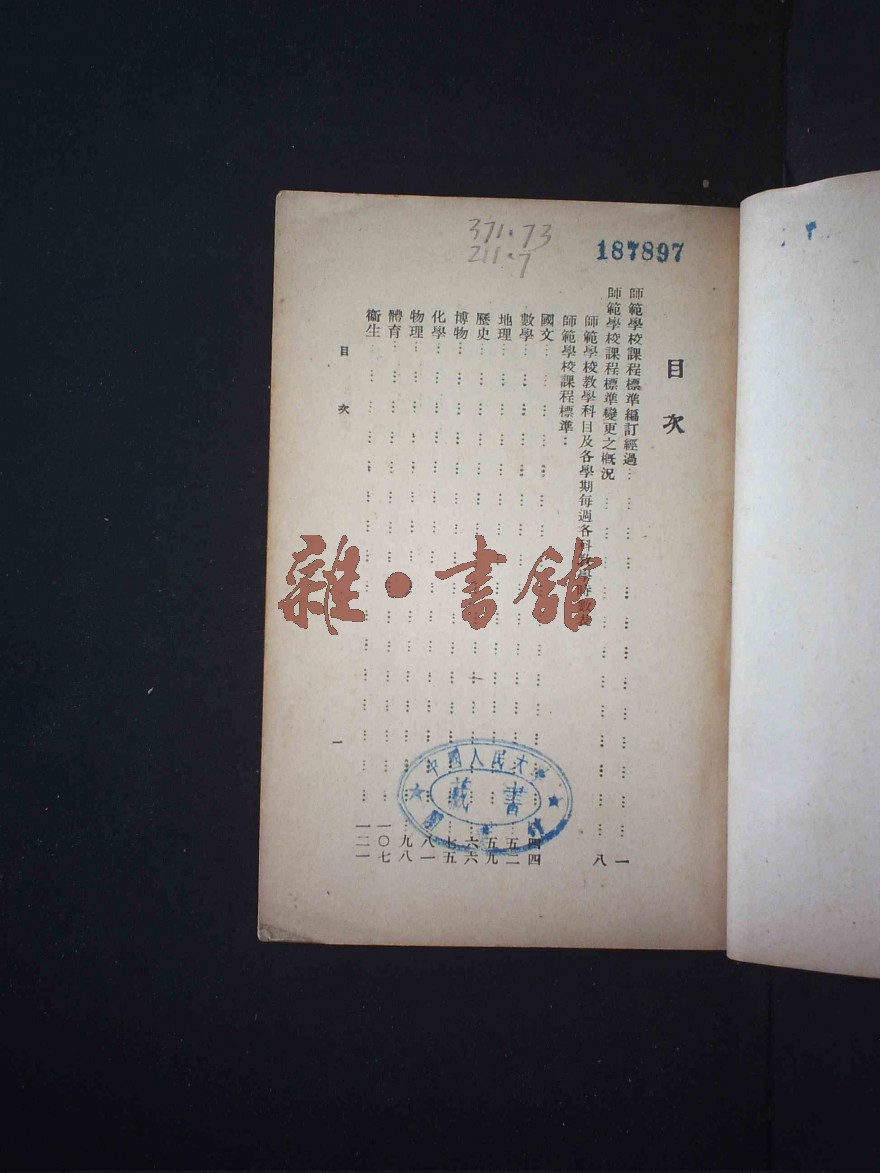 371.73
211.7
187897
目次
師範學校課程標準編訂經過………一
師範學校課程標準變更之概況………八
師範學校教學科目及各學期每週各科教學時數表
師範學校課程標準…
國文………四四
數學………五二
地理………五九
歷史………六六
博物………七五
化學………八一
物理………九八
體育………一〇七
衞生………一二一
目次
一
雜·書館
中國人民大學
藏書
圖書館